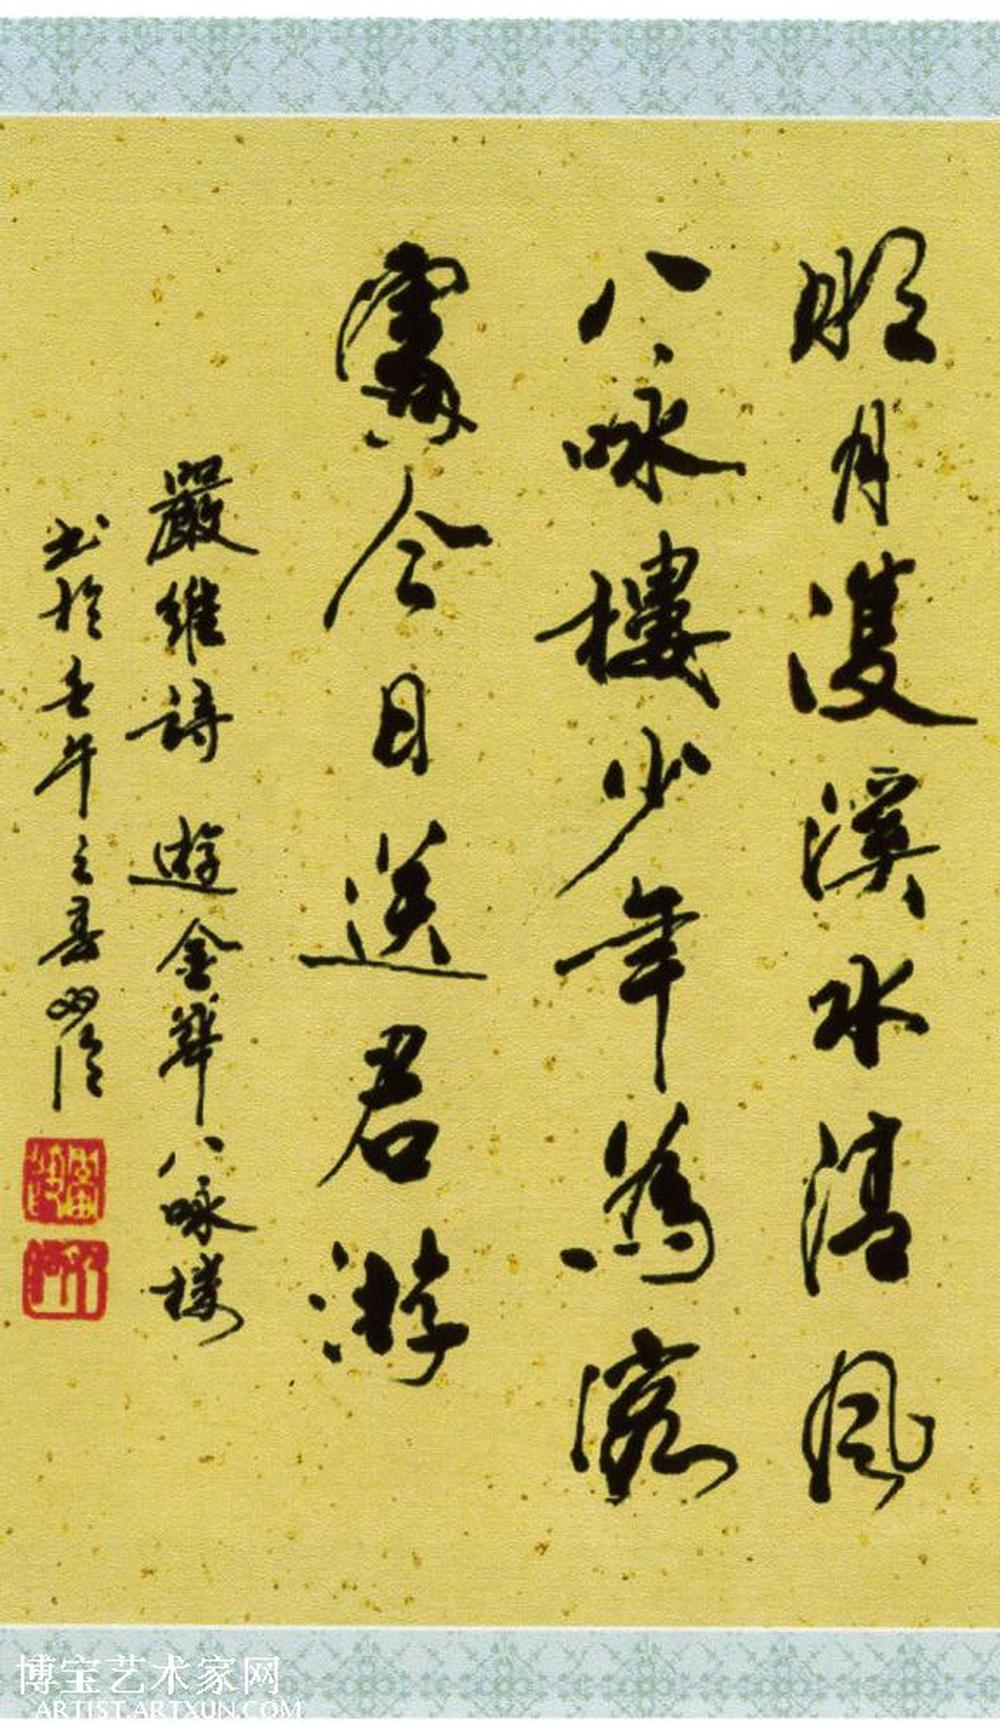 明月雙溪水清風
八咏樓少年為客
處今日送君游
嚴維詩 遊金華八咏樓
书於壬午之春
博宝艺术家网
ARTIST.ARTXUN.COM